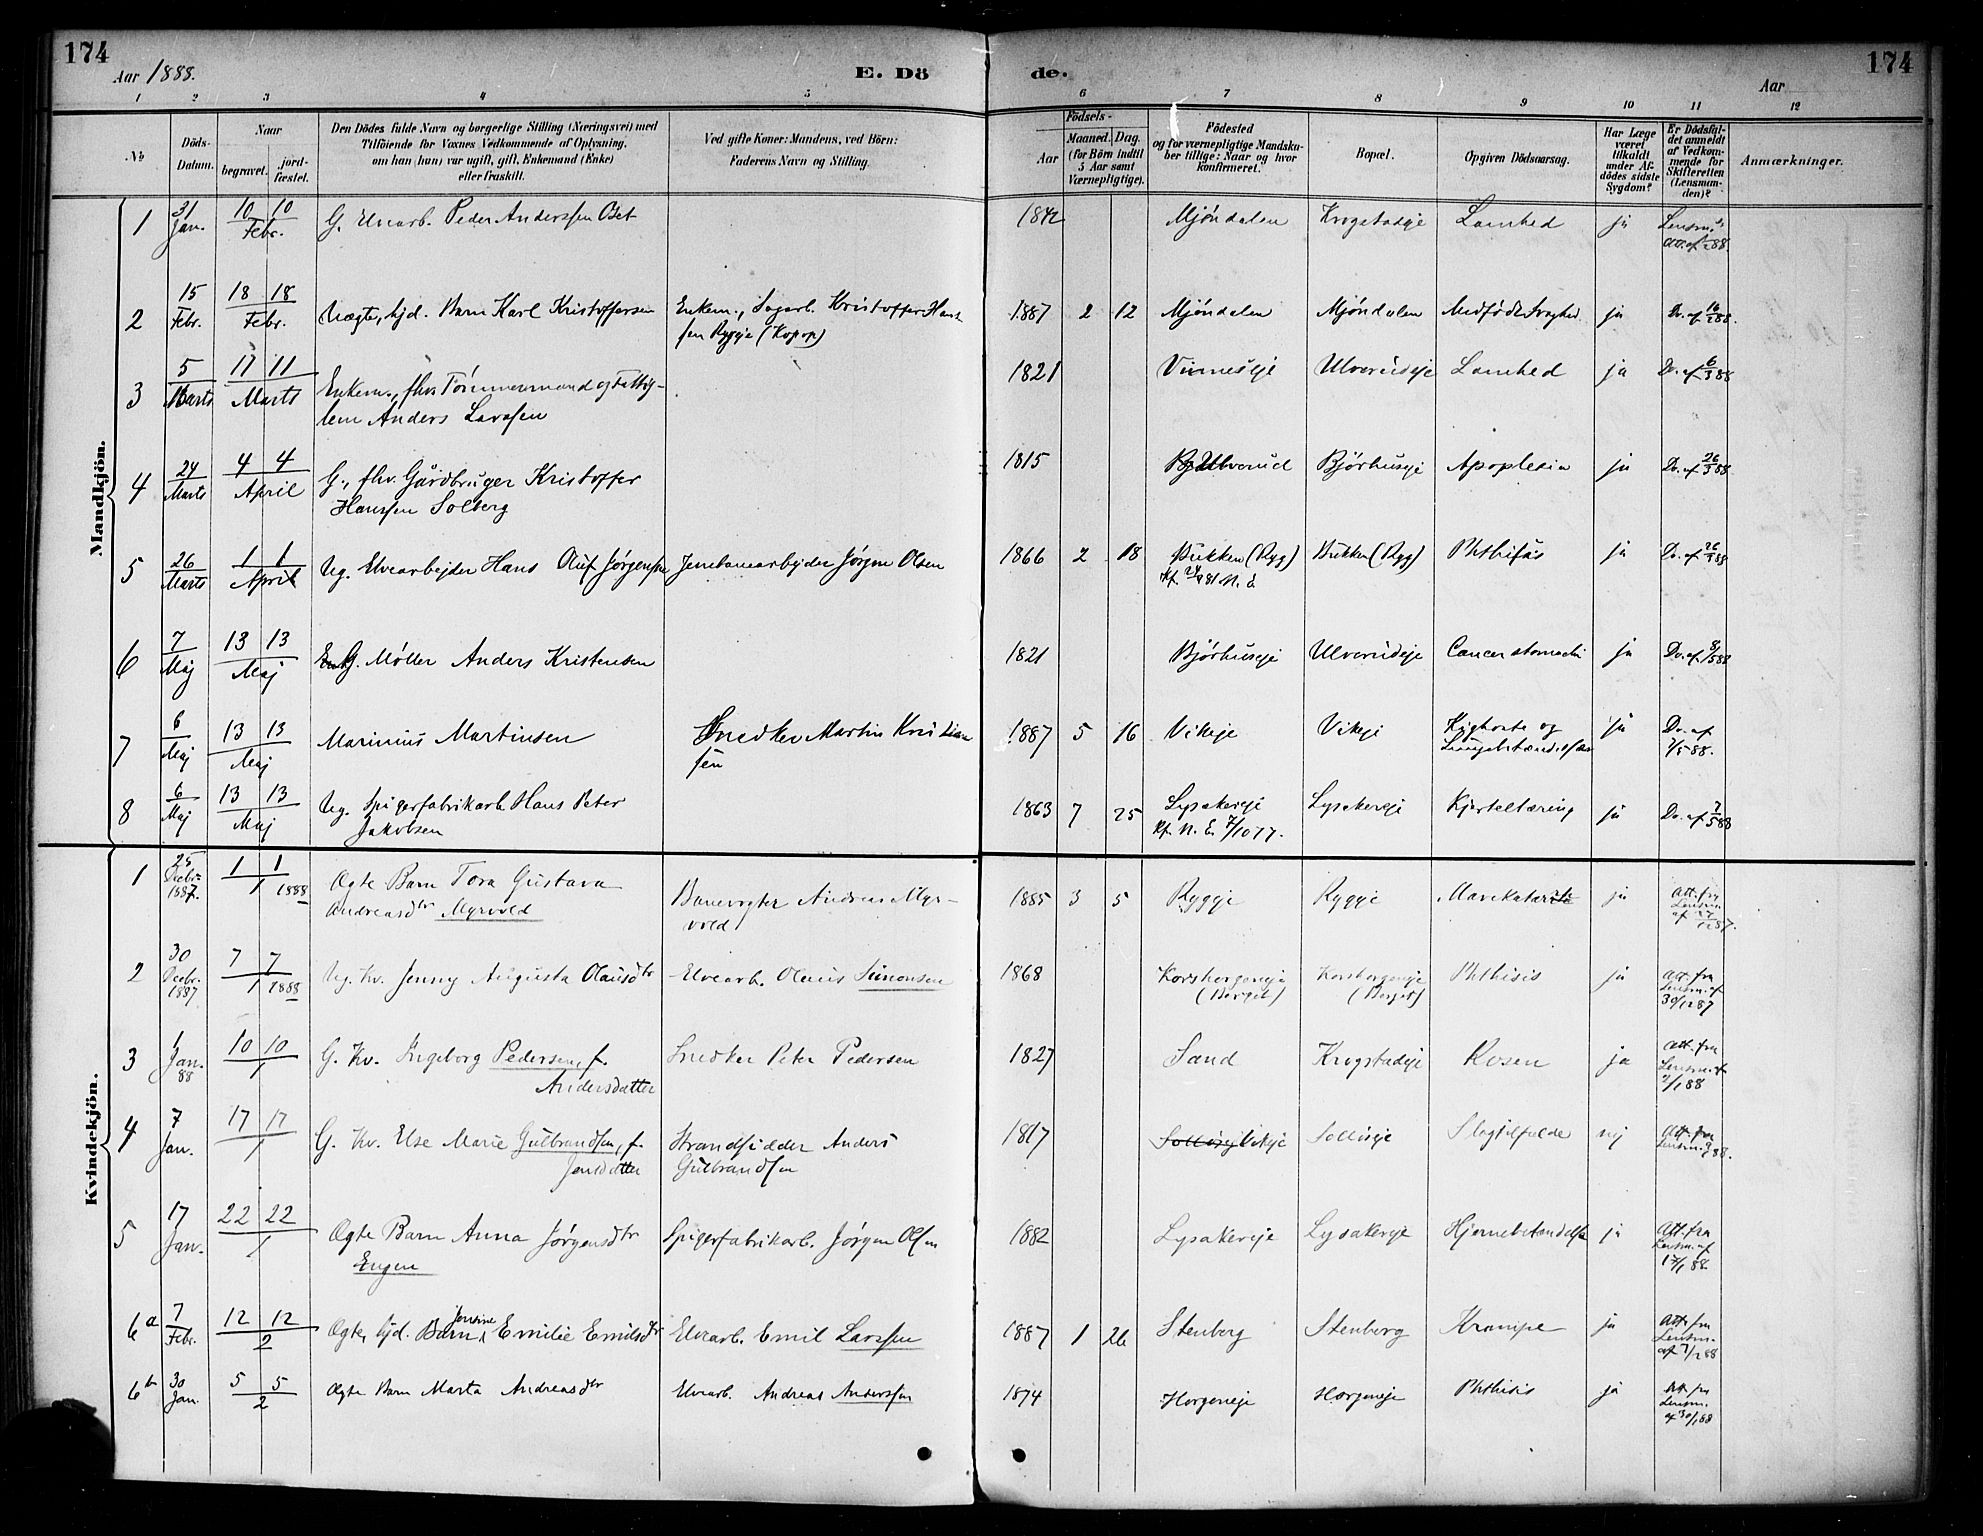 174
Aar 1888.
E. Dö
de.
Aar
174
1 2 3 4 5 6 7 8 9 10 11 12
No
Döds-Datum.
Naar
begravet.
jord-fæstet.
Den Dödes fulde Navn og borgerlige Stilling (Næringsvei) med
Tilföiende for Voxnes Vedkommende af Oplysning,
om han (hun) var ugift, gift, Enkemand (Enke)
eller fraskilt.
Ved gifte Koner: Mandens, ved Börn:
Faderens Navn og Stilling.
Födsels-
Aar
Maaned. Dag.
(for Börn indtil
5 Aar samt
Værnepligtige).
Födested
og for værnepligtige Mandsku-
ber tillige: Naar og hvor
konfirmeret.
Bopæl.
Opgiven Dödsaarsag.
Har Læge
været
tilkaldt
under Af-
dödes sidste
Sygdom?
Er Dödsfal-
det anmeldt
af Vedkom-
mende for
Skifteretten
(Lensman-
den)?
Anmærkninger.
Mandkjön.
1 31 Jan. 10 10 Febr. G. Elvearb. Peder Anderssen 1842 Mjøndalen Krogstadeje Lamhed ja Lensm.s Att. af 88
2 15 Febr. 18 18 Febr. Uægte, hjd. Barn Karl Kristoffersen Enkem., Sagarb. Kristoffer Hans
sen Ryggje 1887 2 12 Mjøndalen Mjøndalen Medfødt Svaghed ja Do. af 16/2 88.
3 5 Marts 11 11 Marts Enkem., fhv. Tømmermand og Fattig-
lem Anders Larssen 1821 Vinneseje Ulverudeje Lamhed ja Do. af 6/3 88
4 24 Marts 4 4 April G., fhv. Gårdbruger Kristoffer
Hanssen Solberg 1815 Ulverud Bjørhuseje Apoplexia ja Do. af 26/3 88
5 26 Marts 1 1 April Ug. Elvearbejder Hans Oluf Jørgenssen Jernbanearbejder Jørgen Olsen 1866 2 18 Bukken (Ryg) Bukken (Ryg) Phthisis ja Do. af 88
6 7 Maj 13 13 Maj G. Møller Anders Kristensen 1821 Bjørhuseje Ulverudeje Cancer stomachi ja Do. af 8/5 88
7 6 Maj 13 13 Maj Marinius Martinsen Snedker Martin Kristian
sen 1887 5 16 Vikeje Vikeje Kighoste og
Lungebetændelse ja Do. af
7/5 88.
8 6 Maj 13 13 Maj Ug. Spigerfabrikarb. Hans Peter
Jakobsen 1863 7 25 Lysakereje
Kf. N. E. 7/10 77. Lysakereje Kjerteltæring ja Do. af 7/5 88
Kvindekjön.
1 25 Decbr. 1887. 1 1 1 1888 Ægte Barn Tora Gustava
Andreasdtr Myrvold Banevogter Andreas Myr-
vold 1885 3 5 Ryggje Ryggje Mavekatarr ja Att. fra Lensm. af 87.
2 30 Decbr. 1887 7 7 1 1888 Ug. Kv. Jenny Augusta Olausdtr Elvearb. Olaus Simonsen 1868 Korshorgeneje
(Berget) Korshorgeneje
(Berget) Phthisis ja Att. fra Lensm. af 30/12 87
3 1 Jan. 88 10 10 1 G. Kv. Ingeborg Pedersen, f.
Andersdatter Snedker Peter Pedersen 1827 Sand Krogstadeje Rosen ja Att. fra Lensm. af 2/1 88
4 7 Jan. 17 17 1 G. Kv. Else Marie Gulbrandsen, f.
Jensdatter Strandsidder Anders
Gulbrandsen 1817 Vikeje Sollieje Slagtilfælde nej Att. fra Lensm. 88.
5 17 Jan. 22 22 1 Ægte Barn Anna Jørgensdtr
Engen Spigerfabrikarb. Jørgen Olsen 1882 Lysakereje Lysakereje Hjernebetændelse ja Att. fra Lensm. af 17/1 88
6a 7 Febr. 12 12 2 Ægte, hjd. Barn Jensine Emilie Emilsdtr Elvearb. Emil Larssen 1887 1 26 Stenberg Stenberg Krampe ja Att. fra Lensm. af 7/2 88
6b 30 Jan. 5 5 2 Ægte Barn Marta Andreasdtr Elvearb. Andreas Anderssen 1874 Horgeneje Horgeneje Phthisis ja Att. fra Lensm. af 30/1 88